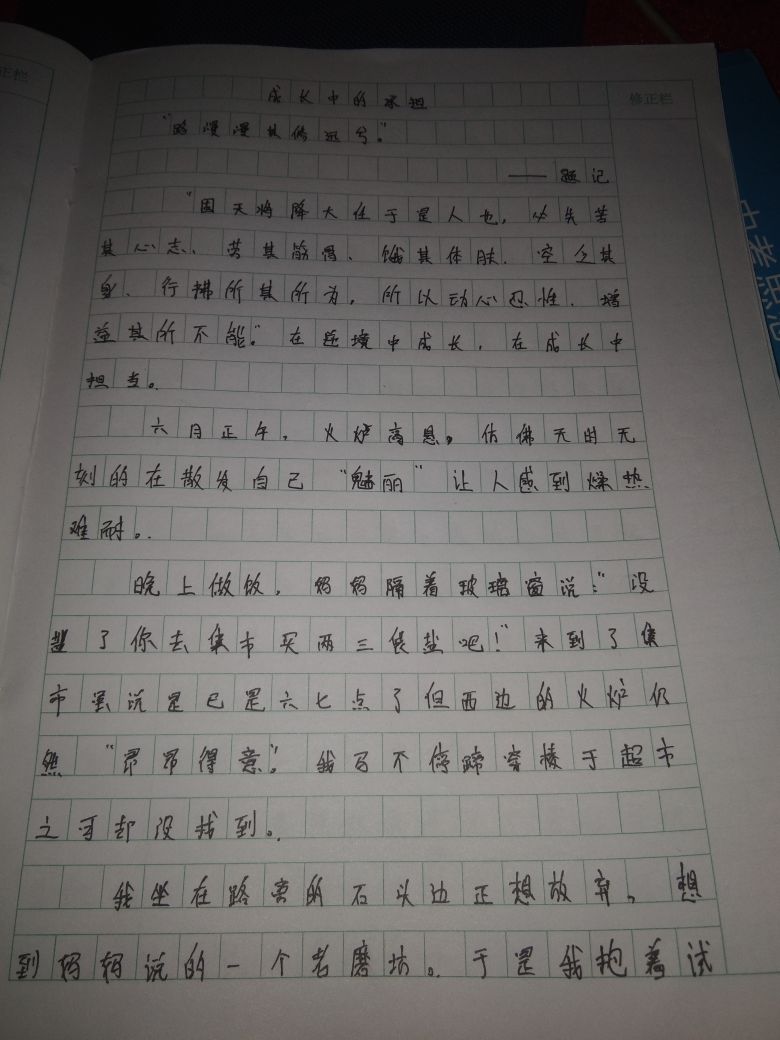 正栏
修正栏
成长中的承担
“路漫漫其修远兮。”
——题记
“因天将降大任于是人也，必先苦
其心志、劳其筋骨、饿其体肤、空乏其
身、行拂所其所为，所以动心忍性、增
益其所不能。”在逆境中成长，在成长中
担当。
六月正午，火炉高悬。仿佛无时无
刻的在散发自己“魅丽”让人感到燥热
难耐。
晚上做饭，妈妈隔着玻璃窗说：“没
盐了你去集市买两三袋盐吧！”来到了集
市虽说是已是六七点了但西边的火炉仍
然“昂昂得意”。我马不停蹄穿梭于超市
之间却没找到。
我坐在路旁的石头边正想放弃。想
到妈妈说的一个老磨坊。于是我抱着试
中考